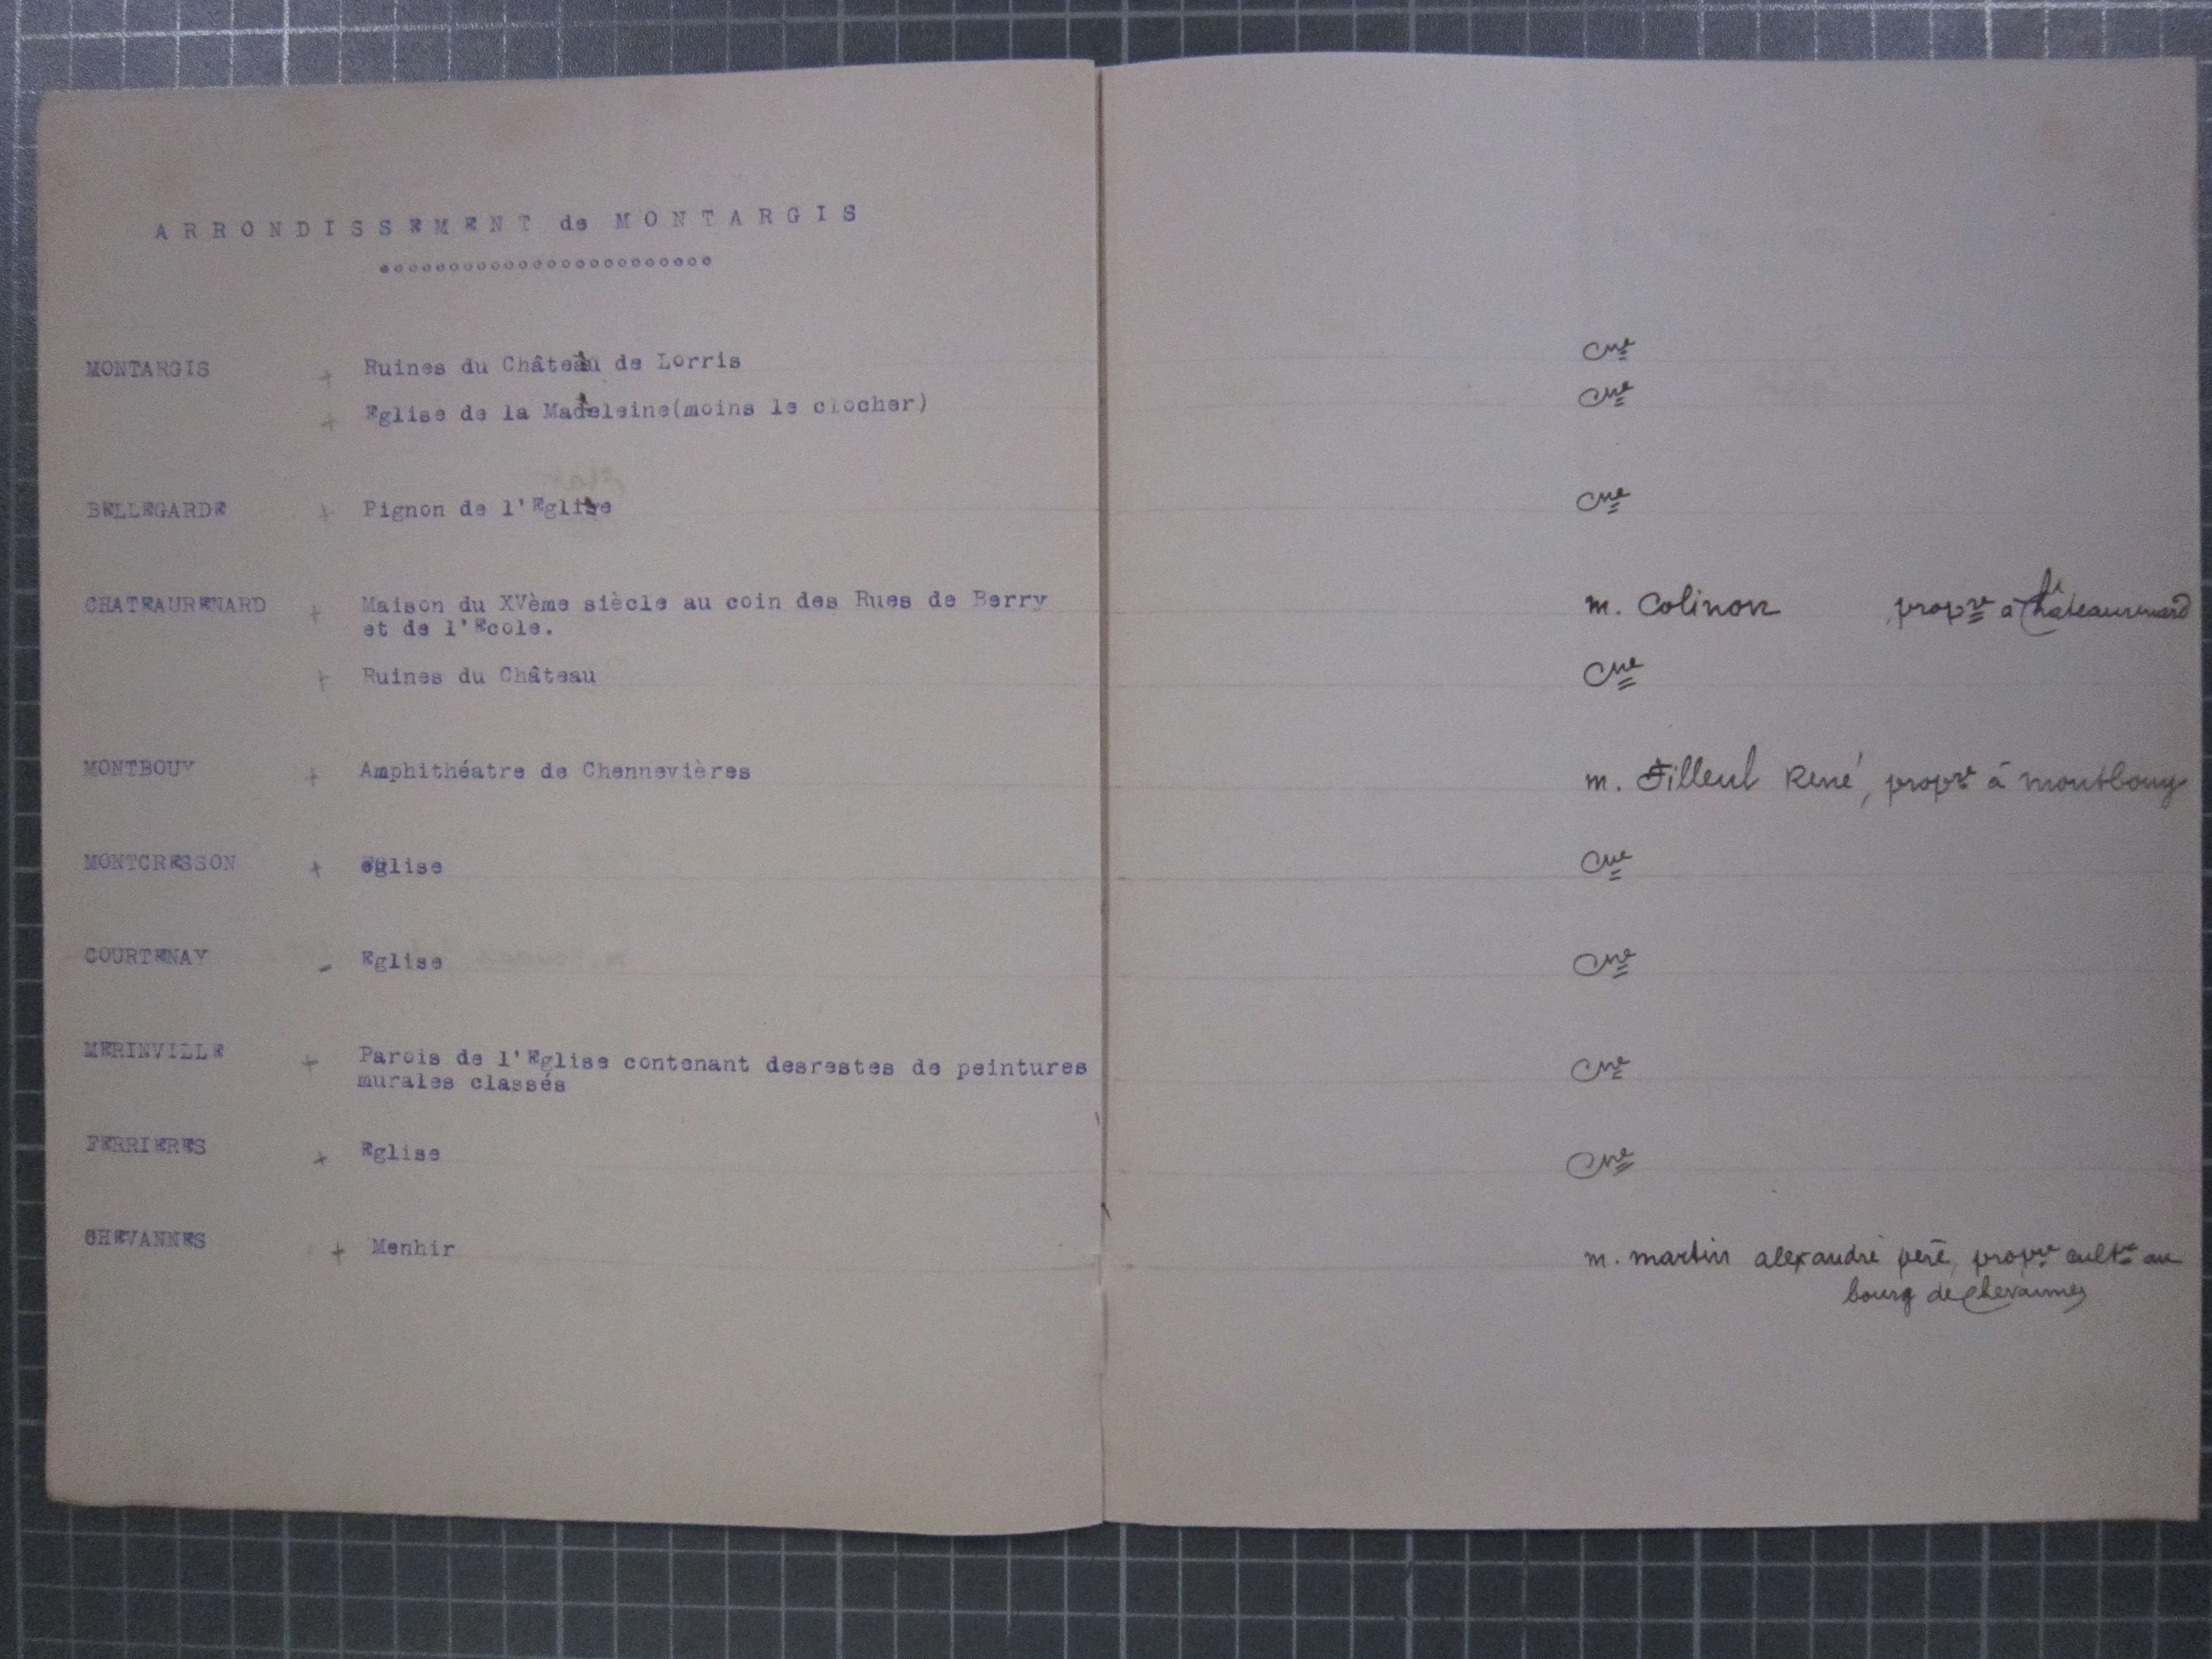 ARRONDISSEMENT de MONTARGIS
MONTARGIS + Ruines du Château de Lorris Cne
+ Eglise de la Madeleine(moins le clocher) Cne
BELLEGARDE + Pignon de l'Eglise Cne
CHATEAURENARD + Maison du XVème siècle au coin des Rues de Berry m. Colinon propre à Châteaurenard
et de l'Ecole.
+ Ruines du Château Cne
MONTBOUY + Amphithéatre de Chennevières m. Filleul René, propre à montbouy
MONTCRESSON + église Cne
COURTENAY - Eglise Cne
MERINVILLE + Parois de l'Eglise contenant desrestes de peintures Cne
murales classés
FERRIERES + Eglise Cne
CHEVANNES + Menhir m. martin alexandre père, propre cultr au
bourg de chevannes